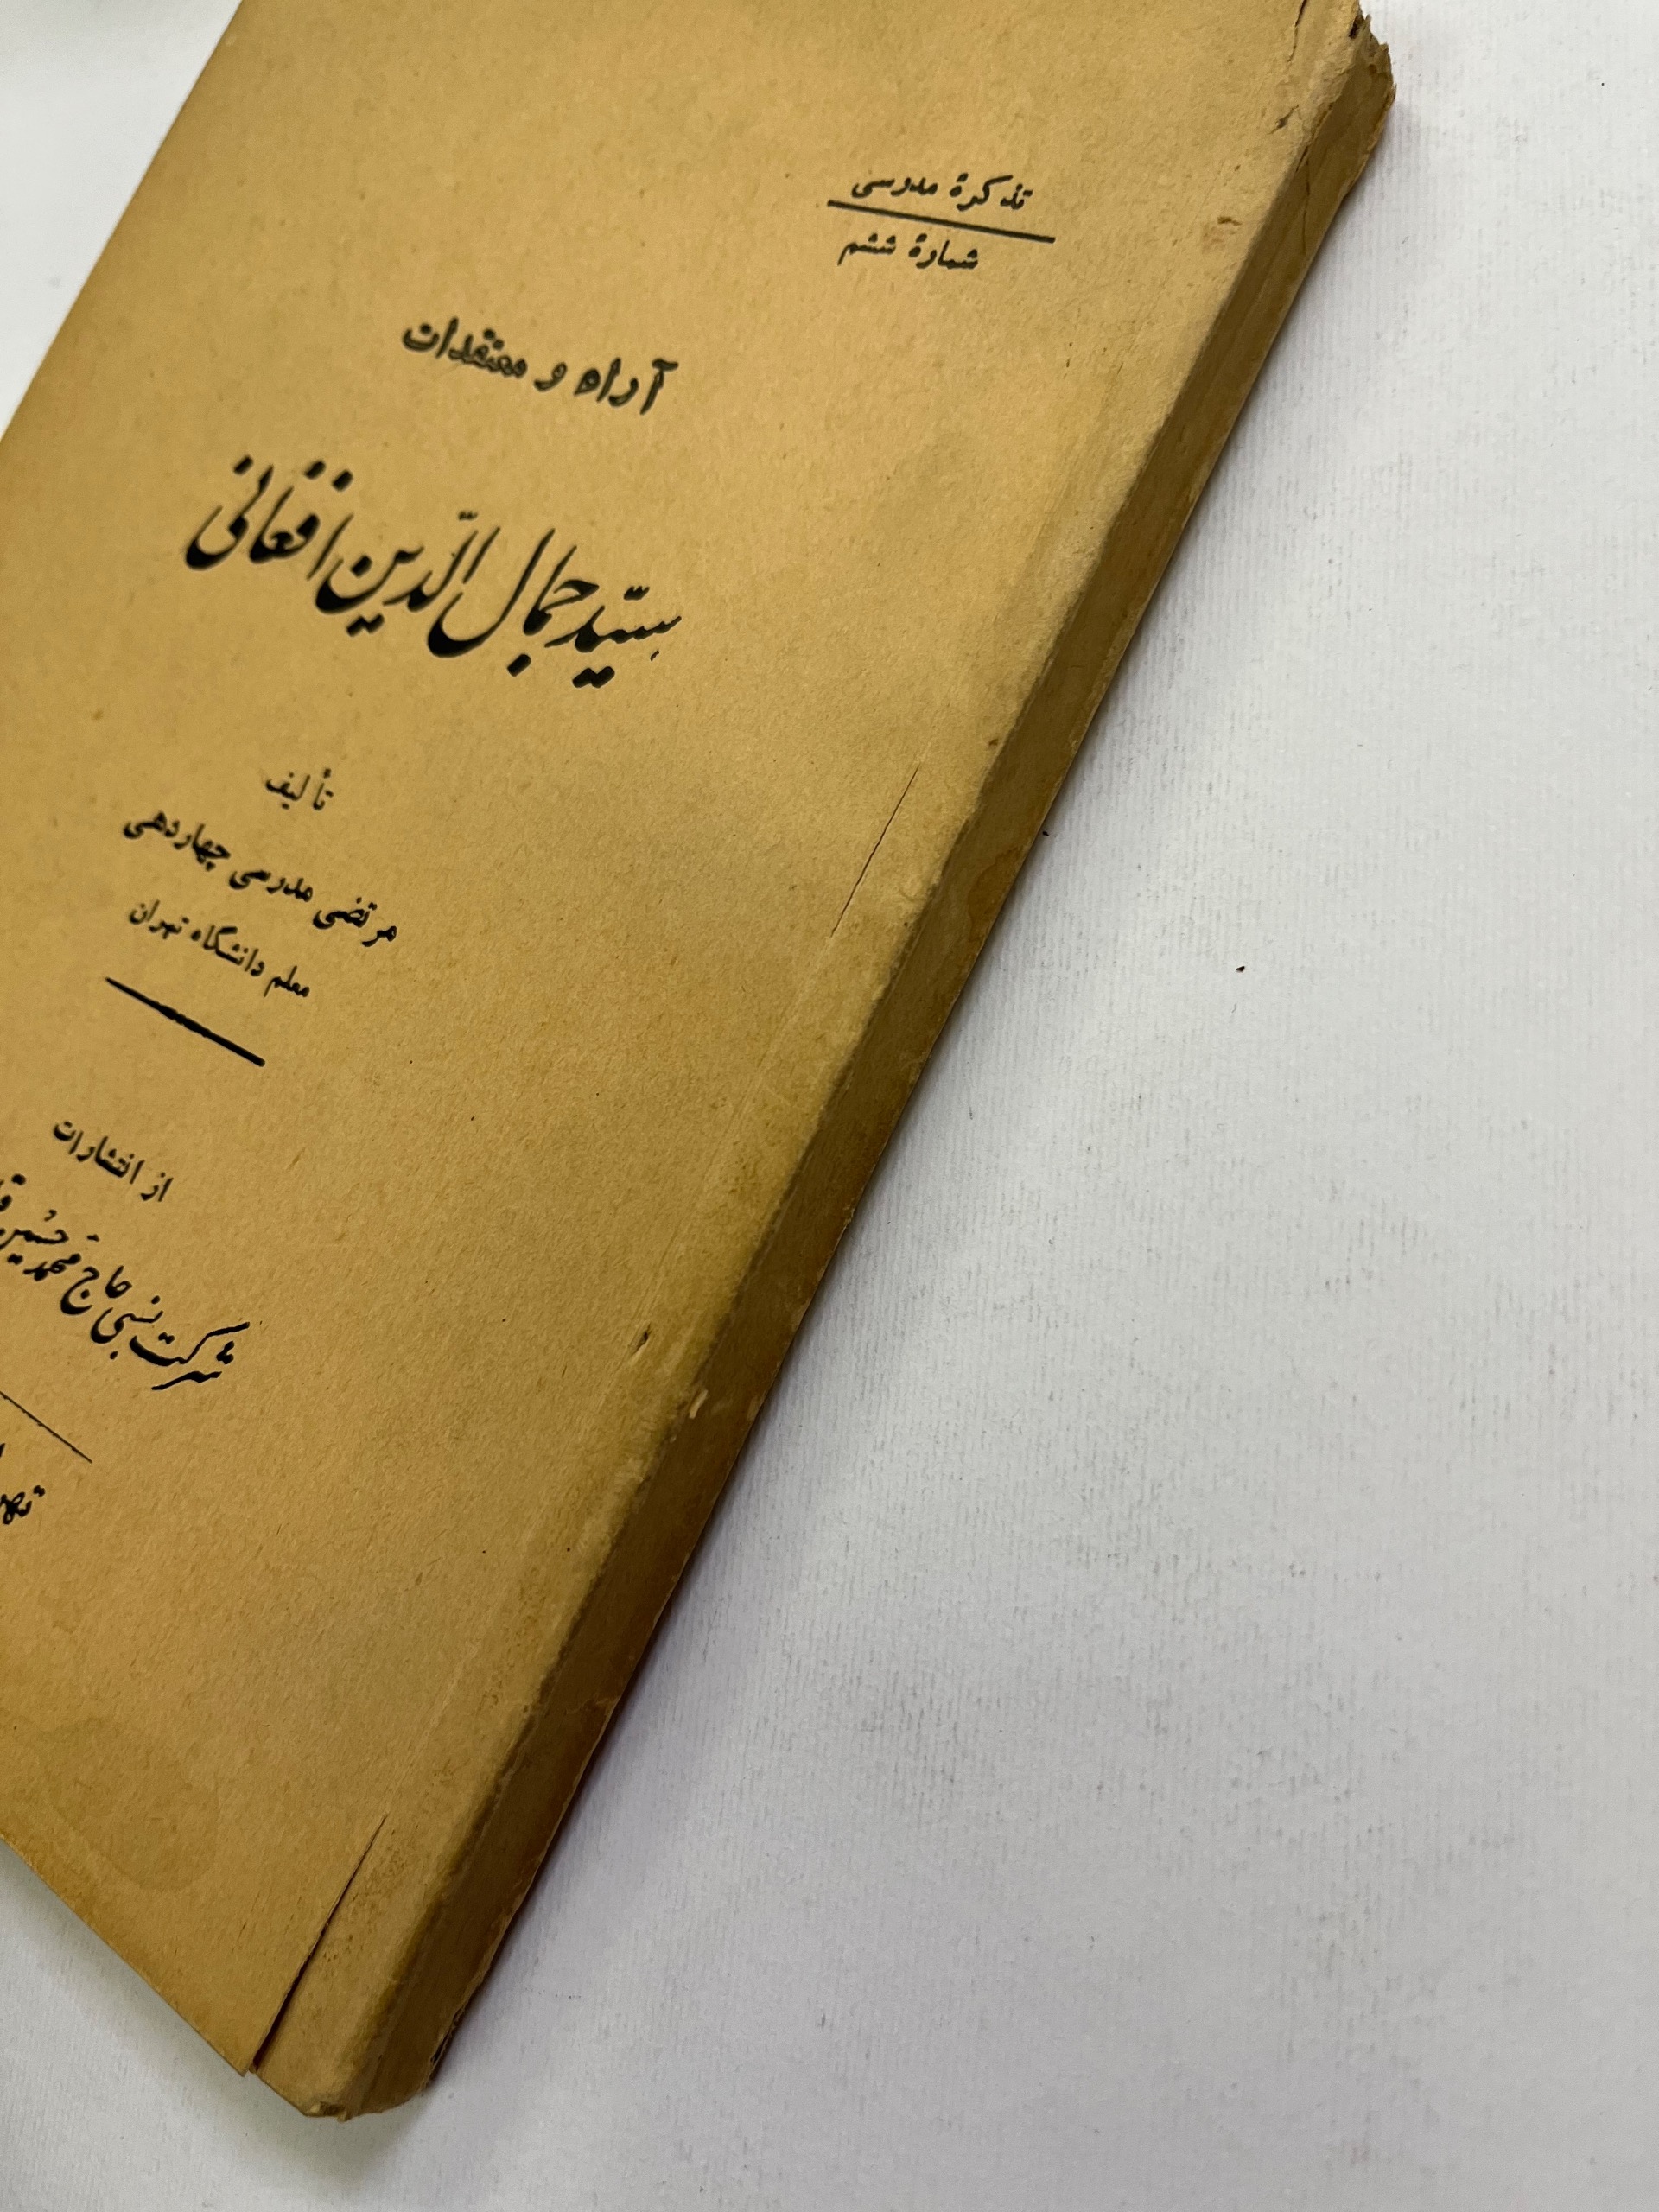 تذكرۀ مدرسی
شمارۀ ششم
آراء و معتقدات
سیّد جمال الدّین افغانی
تألیف
مرتضی مدرسی چهاردهی
معلم دانشگاه تهران
از انتشارات
شرکت نسبی حاج محمد حسین